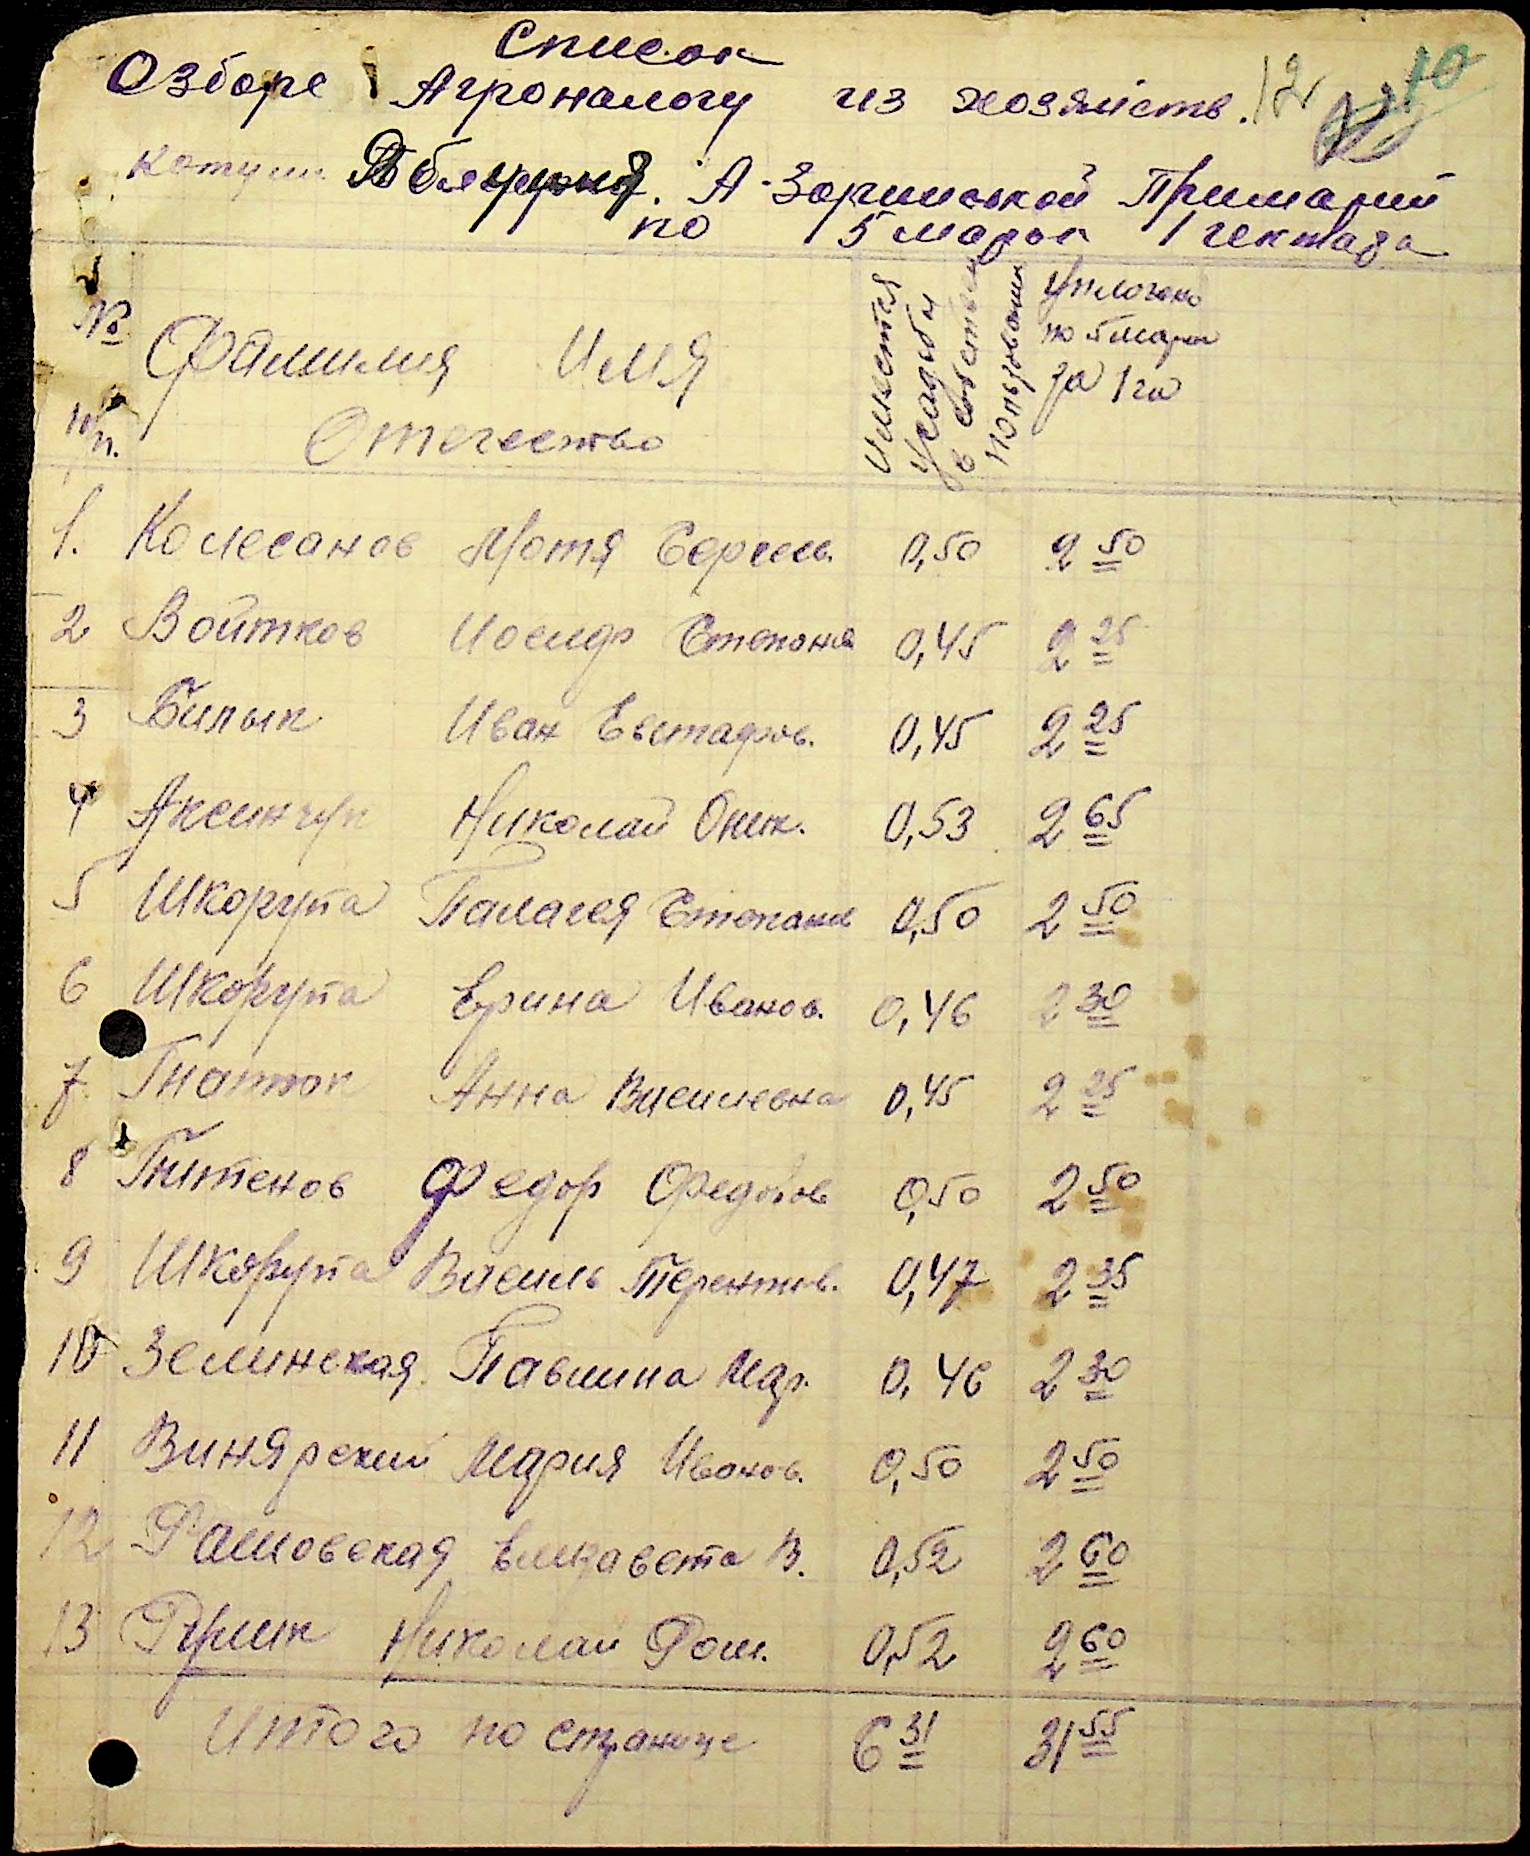 Список
О зборе Агроналогу из хозяйств. 12 10
Котуни А-Заринской Примарии
по 5 марок 1 гектара
№ п/п. Фамилия Имя Отечество Имеется усадьбы в собствен пользовании Уплочено по 5 марок за 1 га
1. Колесанов Мотя Сергеев. 0,50 2 50
2 Войтков Иосиф Степанов 0,45 2 25
3 Билык Иван Евстафов. 0,45 2 25
4 Аксинчук Николай Оник. 0,53 2 65
5 Шкорупа Палагея Степанов 0,50 2 50
6 Шкорупа Ерина Иванов. 0,46 2 30
7 Гнатюк Анна Василевна 0,45 2 25
8 Гнитенов Федор Федоров 0,50 2 50
9 Шкорупа Василь Терентив. 0,47 2 35
10 Зелинская Павлина Мар. 0,46 2 30
11 Винярский Мария Иванов. 0,50 2 50
12 Рашовская Елизавета В. 0,52 2 60
13 Рулик Николай Ром. 0,52 2 60
Итого по странице 6 31 31 55